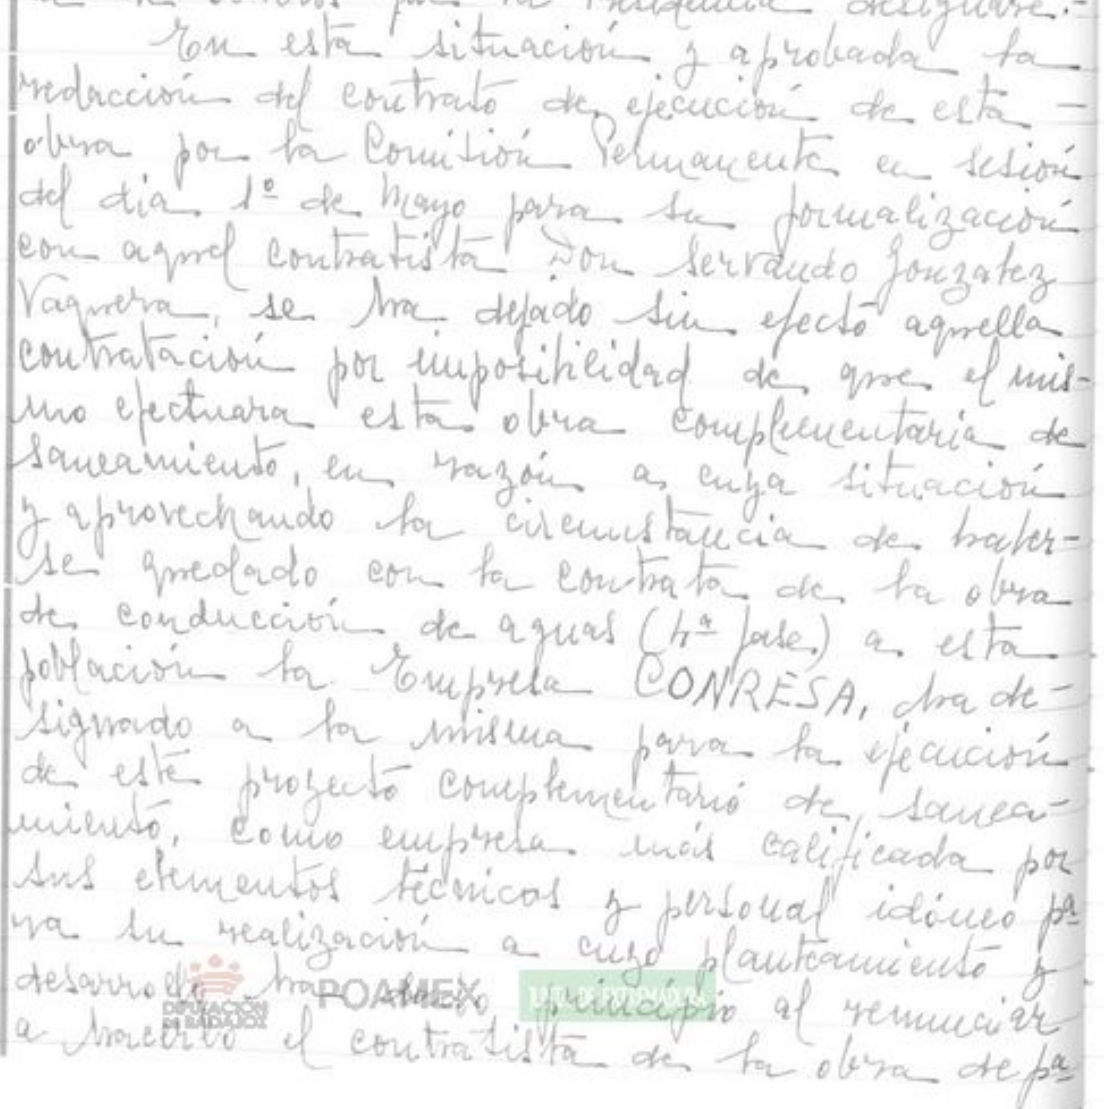 la Presidencia designare.-
En esta situación y aprobada la
redacción del contrato de ejecución de esta -
obra por la Comisión Permanente en sesión
del dia 1º de Mayo para su formalización
con aquel contratista Don Servando Gonzalez
Vaquera, se ha dejado sin efecto aquella
contratación por imposibilidad de que el mis-
mo efectuara esta obra complementaria de
saneamiento, en razón a cuya situación
y aprovechando la circunstancia de haber-
se quedado con la contrata de la obra
de conducción de aguas (4ª fase) a esta
población la Empresa CONRESA, ha de-
signado a la misma para la ejecución
de este proyecto complementario de sanea-
miento, como empresa más calificada por
sus elementos técnicos y personal idóneo pª
ra su realización a cuyo planteamiento y
desarrollo ha principio al renunciar
a hacerlo el contratista de la obra de pª
DIPUTACIÓN DE BADAJOZ
POAMEX